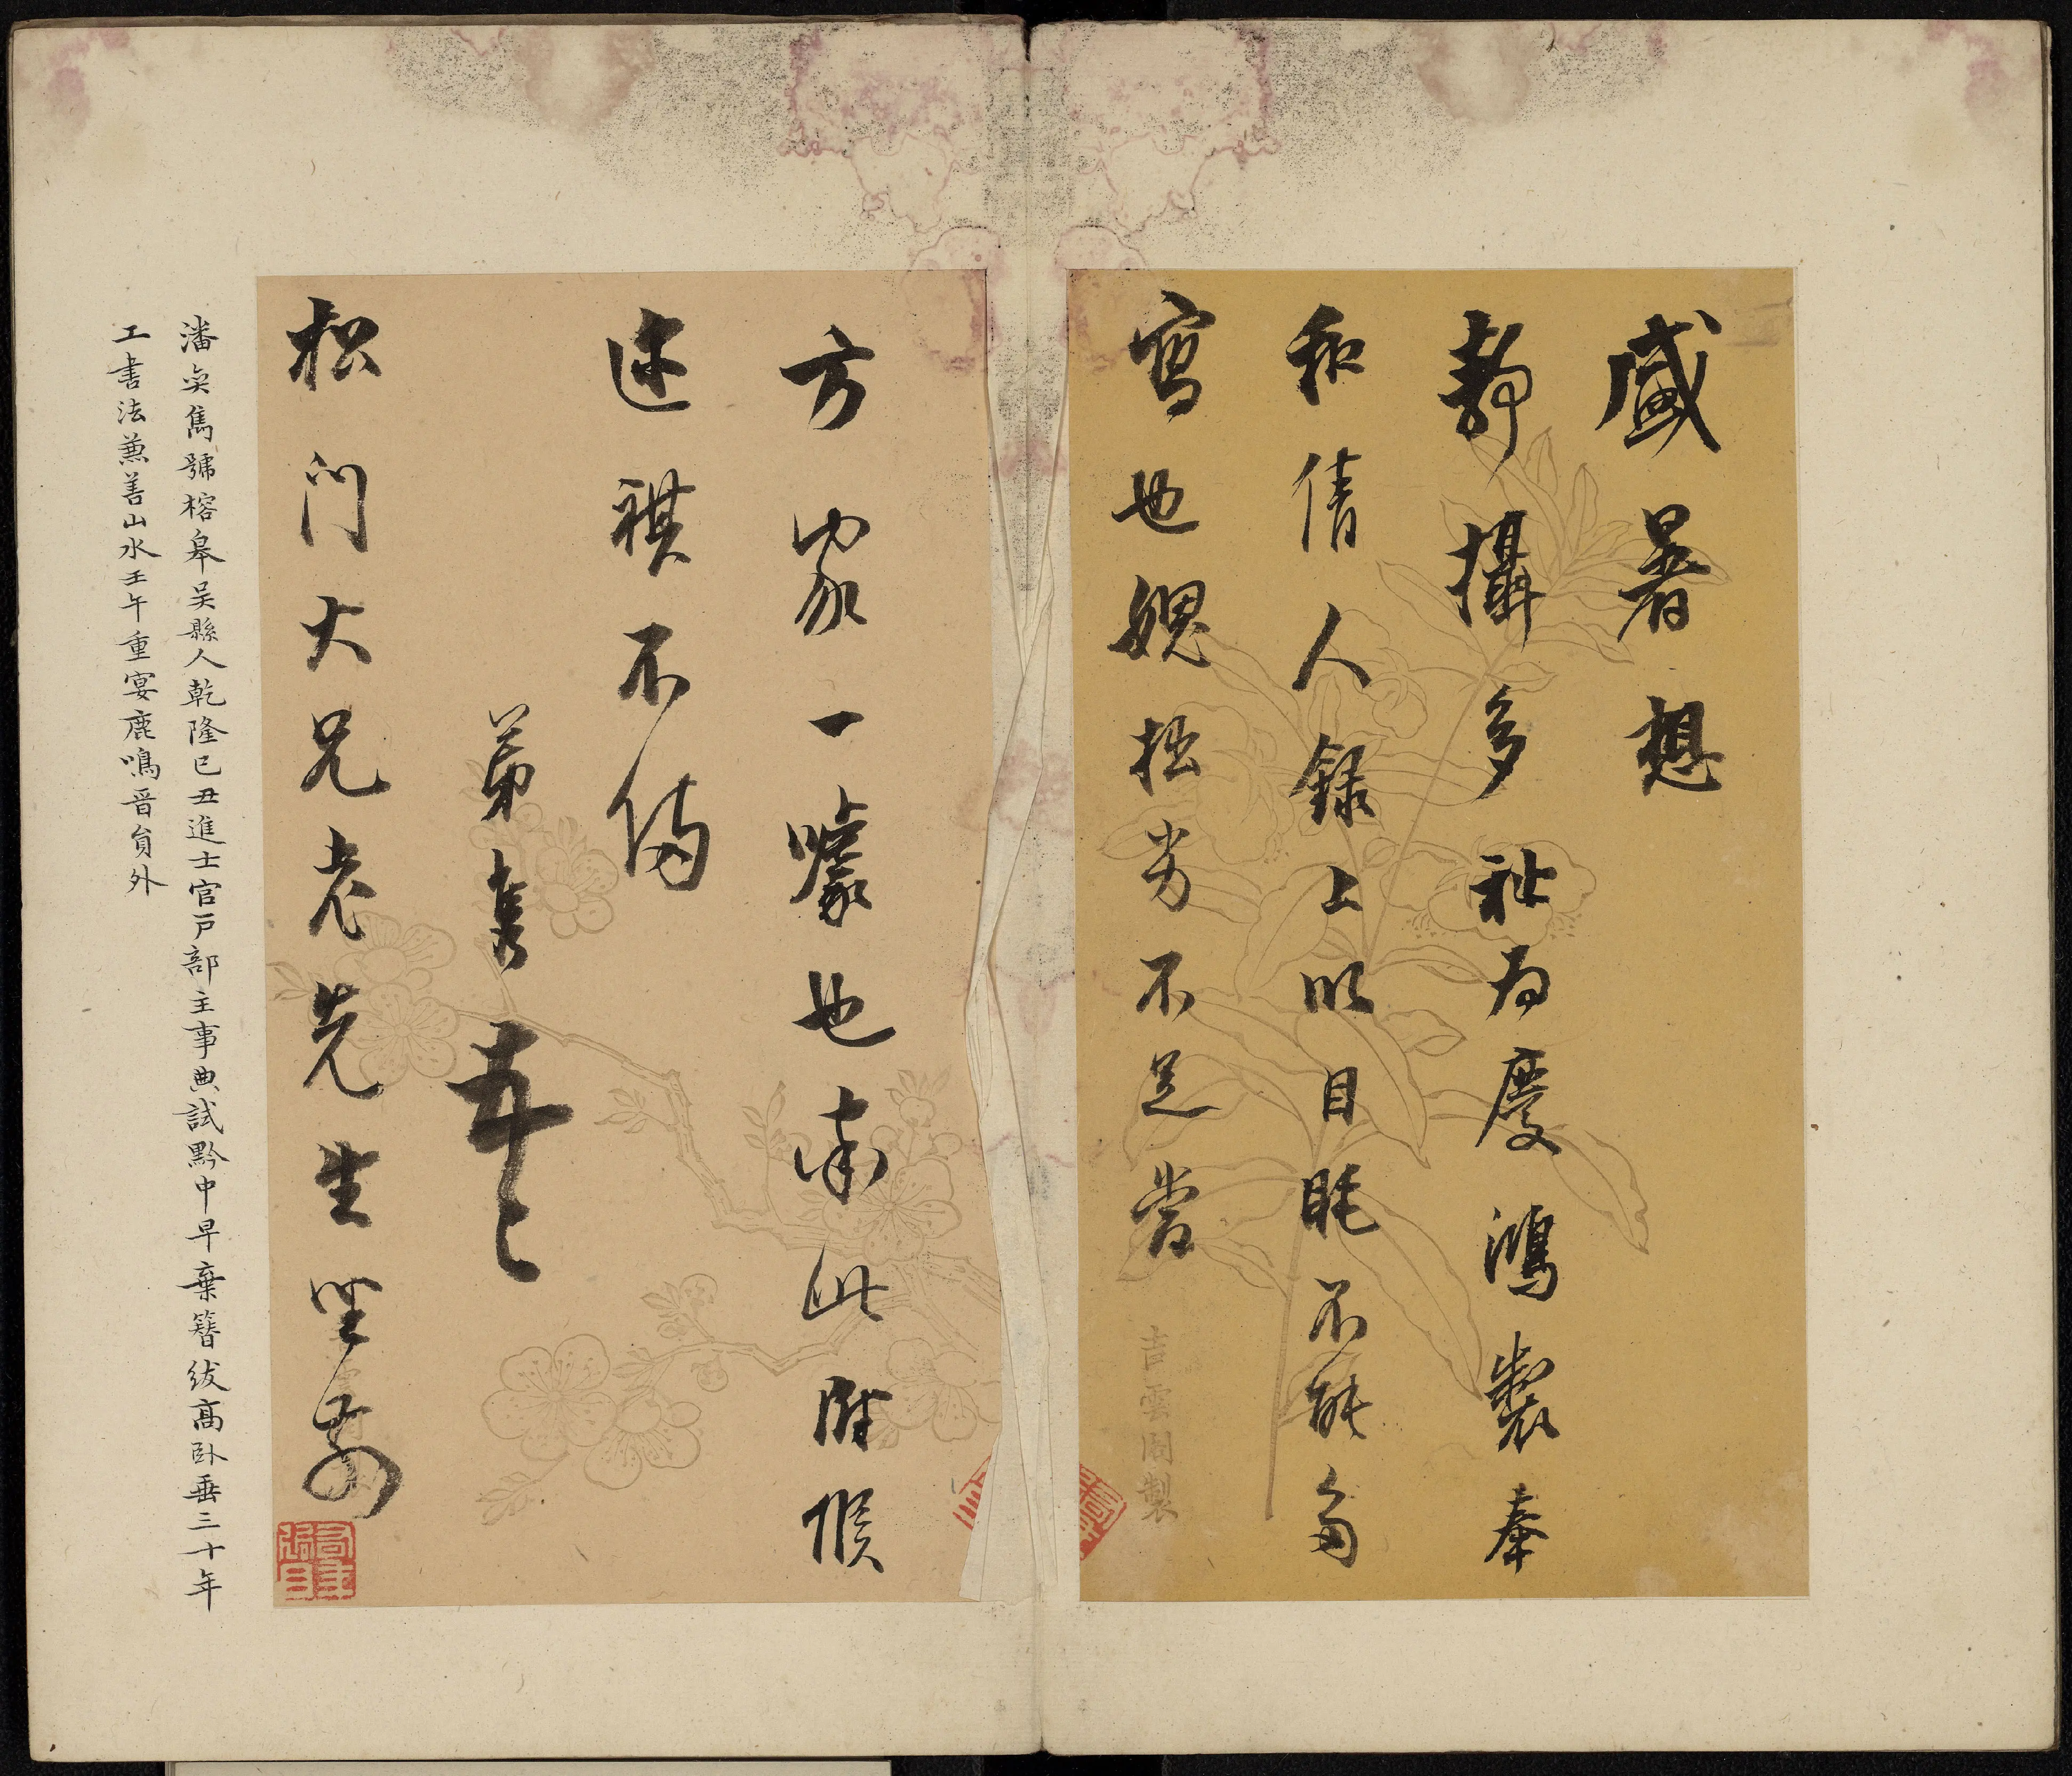 盛暑想
靜攝多祉為慶鴻製奉
和倩人錄上以目眊不能多
寫也媿拙劣不足當
吉雲閣製
方家一噱也肅此附候
近祺不備
弟奕雋頓首
松門大兄老先生坐右
潘奕雋號榕皋吳縣人乾隆己丑進士官戶部主事典試黔中早棄簪紱高臥垂三十年
工書法兼善山水壬午重宴鹿鳴晉員外